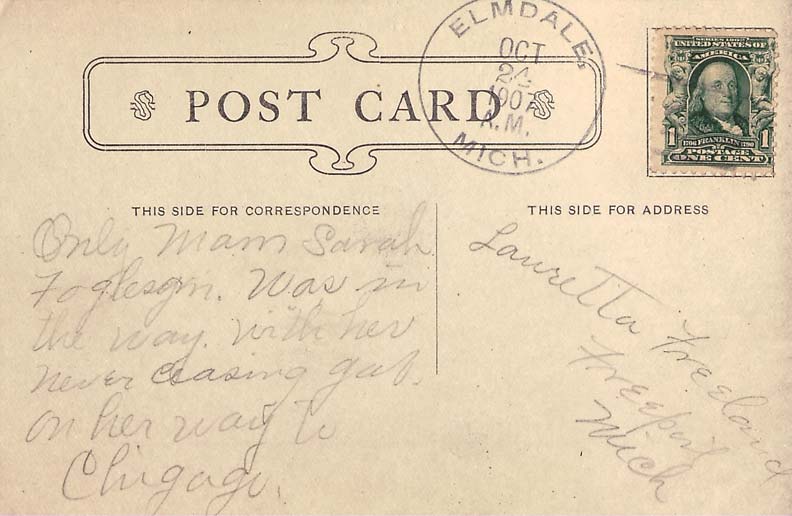 POST CARD
ELMDALE,
OCT
24
1907
A.M.
MICH.
SERIES 1902
UNITED STATES OF
AMERICA
1 1
1706 FRANKLIN 1790
POSTAGE
ONE CENT
THIS SIDE FOR CORRESPONDENCE
THIS SIDE FOR ADDRESS
Only Mam Sarah
Foglesgn. Was in
the way. with her
never ceasing gab.
on her way to
Chigago.
Lauretta Freeland
Freeport
Mich